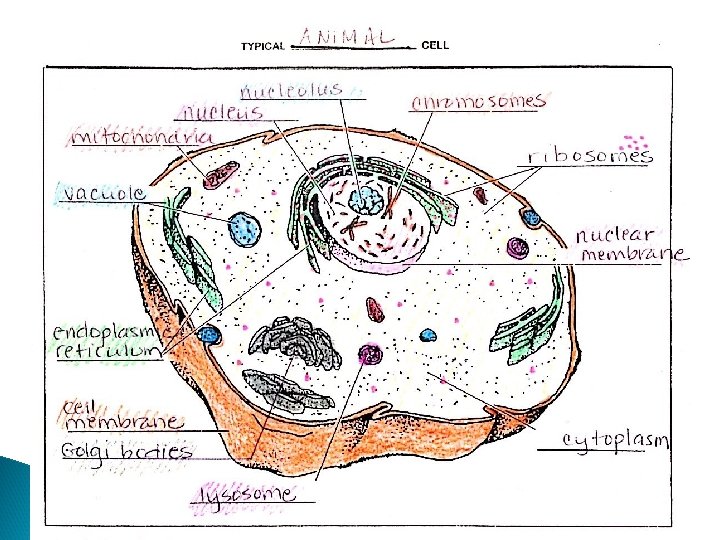 TYPICAL ANIMAL CELL
nucleolus
nucleus
chromosomes
mitochondria
ribosomes
vacuole
nuclear
membrane
endoplasmic
reticulum
cell
membrane
Golgi bodies
cytoplasm
lysosome